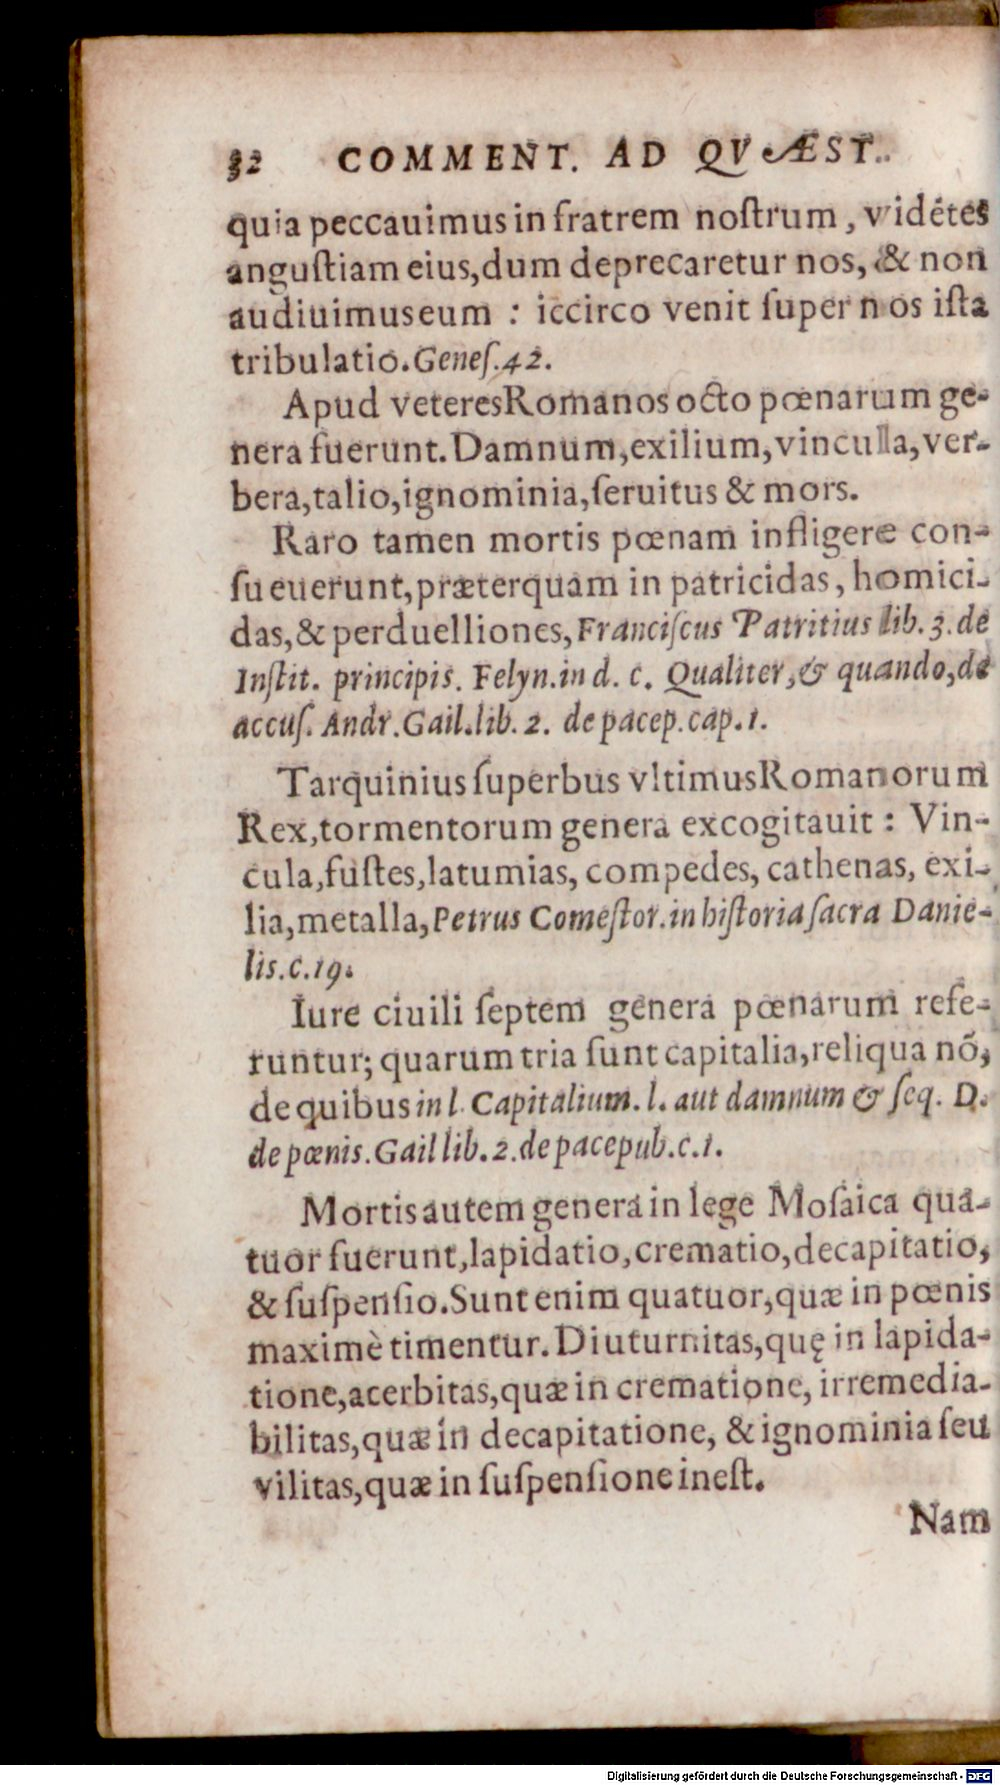 32 COMMENT. AD QVÆST.
quia peccauimus in fratrem noſtrum, vidētes
anguſtiam eius, dum deprecaretur nos, & non
audiuimus eum : iccirco venit ſuper nos iſta
tribulatio. Geneſ. 42.
Apud veteres Romanos octo pœnarum ge-
nera fuerunt. Damnum, exilium, vinculla, ver-
bera, talio, ignominia, ſeruitus & mors.
Raro tamen mortis pœnam infligere con-
ſueuerunt, præterquam in patricidas, homici-
das, & perduelliones, Franciſcus Patritius lib. 3. de
Inſtit. principis. Felyn. in d. c. Qualiter, & quando, de
accuſ. Andr. Gail. lib. 2. de pace p. cap. 1.
Tarquinius ſuperbus vltimus Romanorum
Rex, tormentorum genera excogitauit : Vin-
cula, fuſtes, latumias, compedes, cathenas, exi-
lia, metalla, Petrus Comeſtor. in hiſtoria ſacra Danie-
lis. c. 19.
Iure ciuili ſeptem genera pœnarum refe-
runtur; quarum tria ſunt capitalia, reliqua nō,
de quibus in l. Capitalium. l. aut damnum & ſeq. D.
de pœnis. Gail lib. 2. de pace pub. c. 1.
Mortis autem genera in lege Moſaica qua-
tuor fuerunt, lapidatio, crematio, decapitatio,
& ſuſpenſio. Sunt enim quatuor, quæ in pœnis
maximè timentur. Diuturnitas, quę in lapida-
tione, acerbitas, quæ in crematione, irremedia-
bilitas, quæ in decapitatione, & ignominia ſeu
vilitas, quæ in ſuſpenſione ineſt.
Nam
Digitalisierung gefördert durch die Deutsche Forschungsgemeinschaft - DFG